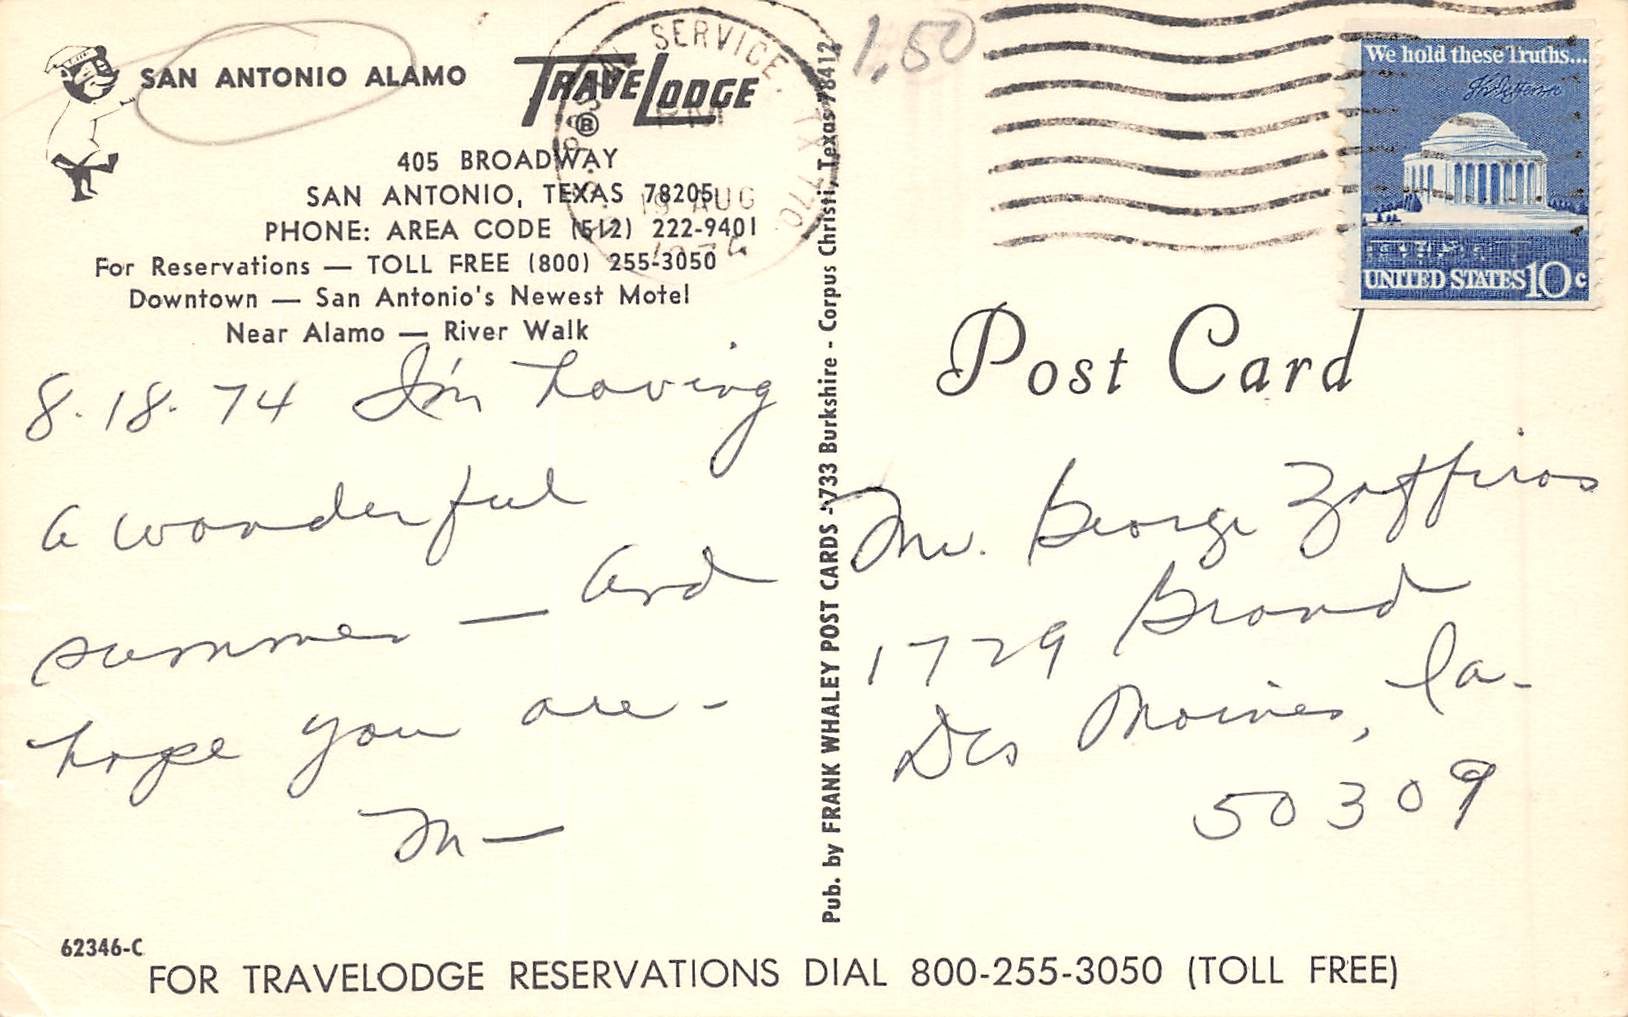 SAN ANTONIO ALAMO TRAVELODGE ®
405 BROADWAY
SAN ANTONIO, TEXAS 78205
PHONE: AREA CODE (512) 222-9401
For Reservations — TOLL FREE (800) 255-3050
Downtown — San Antonio's Newest Motel
Near Alamo — River Walk
8-18-74 I'm having
a wonderful
summer — and
hope you are -
M—
62346-C
Pub. by FRANK WHALEY POST CARDS - 733 Burkshire - Corpus Christi, Texas 78412
SERVICE, TX
19 AUG
1974
1.50
We hold these Truths...
UNITED STATES 10c
Post Card
Mr. George Zaffiros
1729
Des Moines, Ia.
50309
FOR TRAVELODGE RESERVATIONS DIAL 800-255-3050 (TOLL FREE)